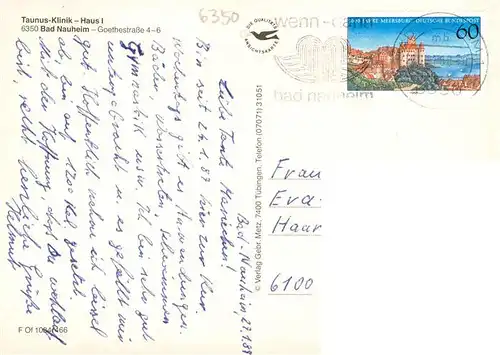 Taunus-Klinik – Haus I
6350 Bad Nauheim – Goethestraße 4–6
6350
DIE QUALITÄTS
ANSICHTSKARTE
wenn - dann
bad nauheim
1000 JAHRE MEERSBURG DEUTSCHE BUNDESPOST
60
Bad-Nauheim, 27.1.88
Liebe Tante Mariechen!
Bin seit 27.1.88 hier zur Kur.
Wochentags gibt es Anwendungen
Bäder, Schwimmen
Gymnastik usw. Ich bin sehr gut
untergebracht u. es gefällt mir
gut. Hoffentlich nehme ich bissel
ab, bin auf 1200 Kal. gesetzt.
In der Hoffnung, daß Du wohlauf
bist, recht herzliche Grüße
Helmut
© Verlag Gebr. Metz, 7400 Tübingen, Telefon (07071) 31051
Frau
Eva
Haar
6100
F Of 1084/166